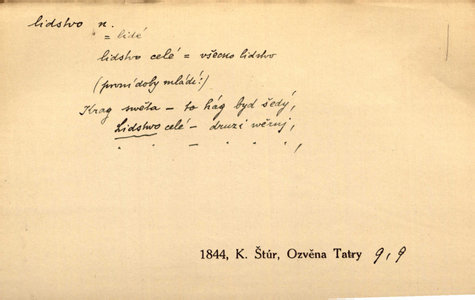 lidstvo n.
= lidé
lidstvo celé = všecko lidstvo
(první doby mládí:)
Krag swěta – to hág byd šedý,
Lidstwo celé – druzi wěrnj,
. . – . . . ,
1844, K. Štúr, Ozvěna Tatry 9,9